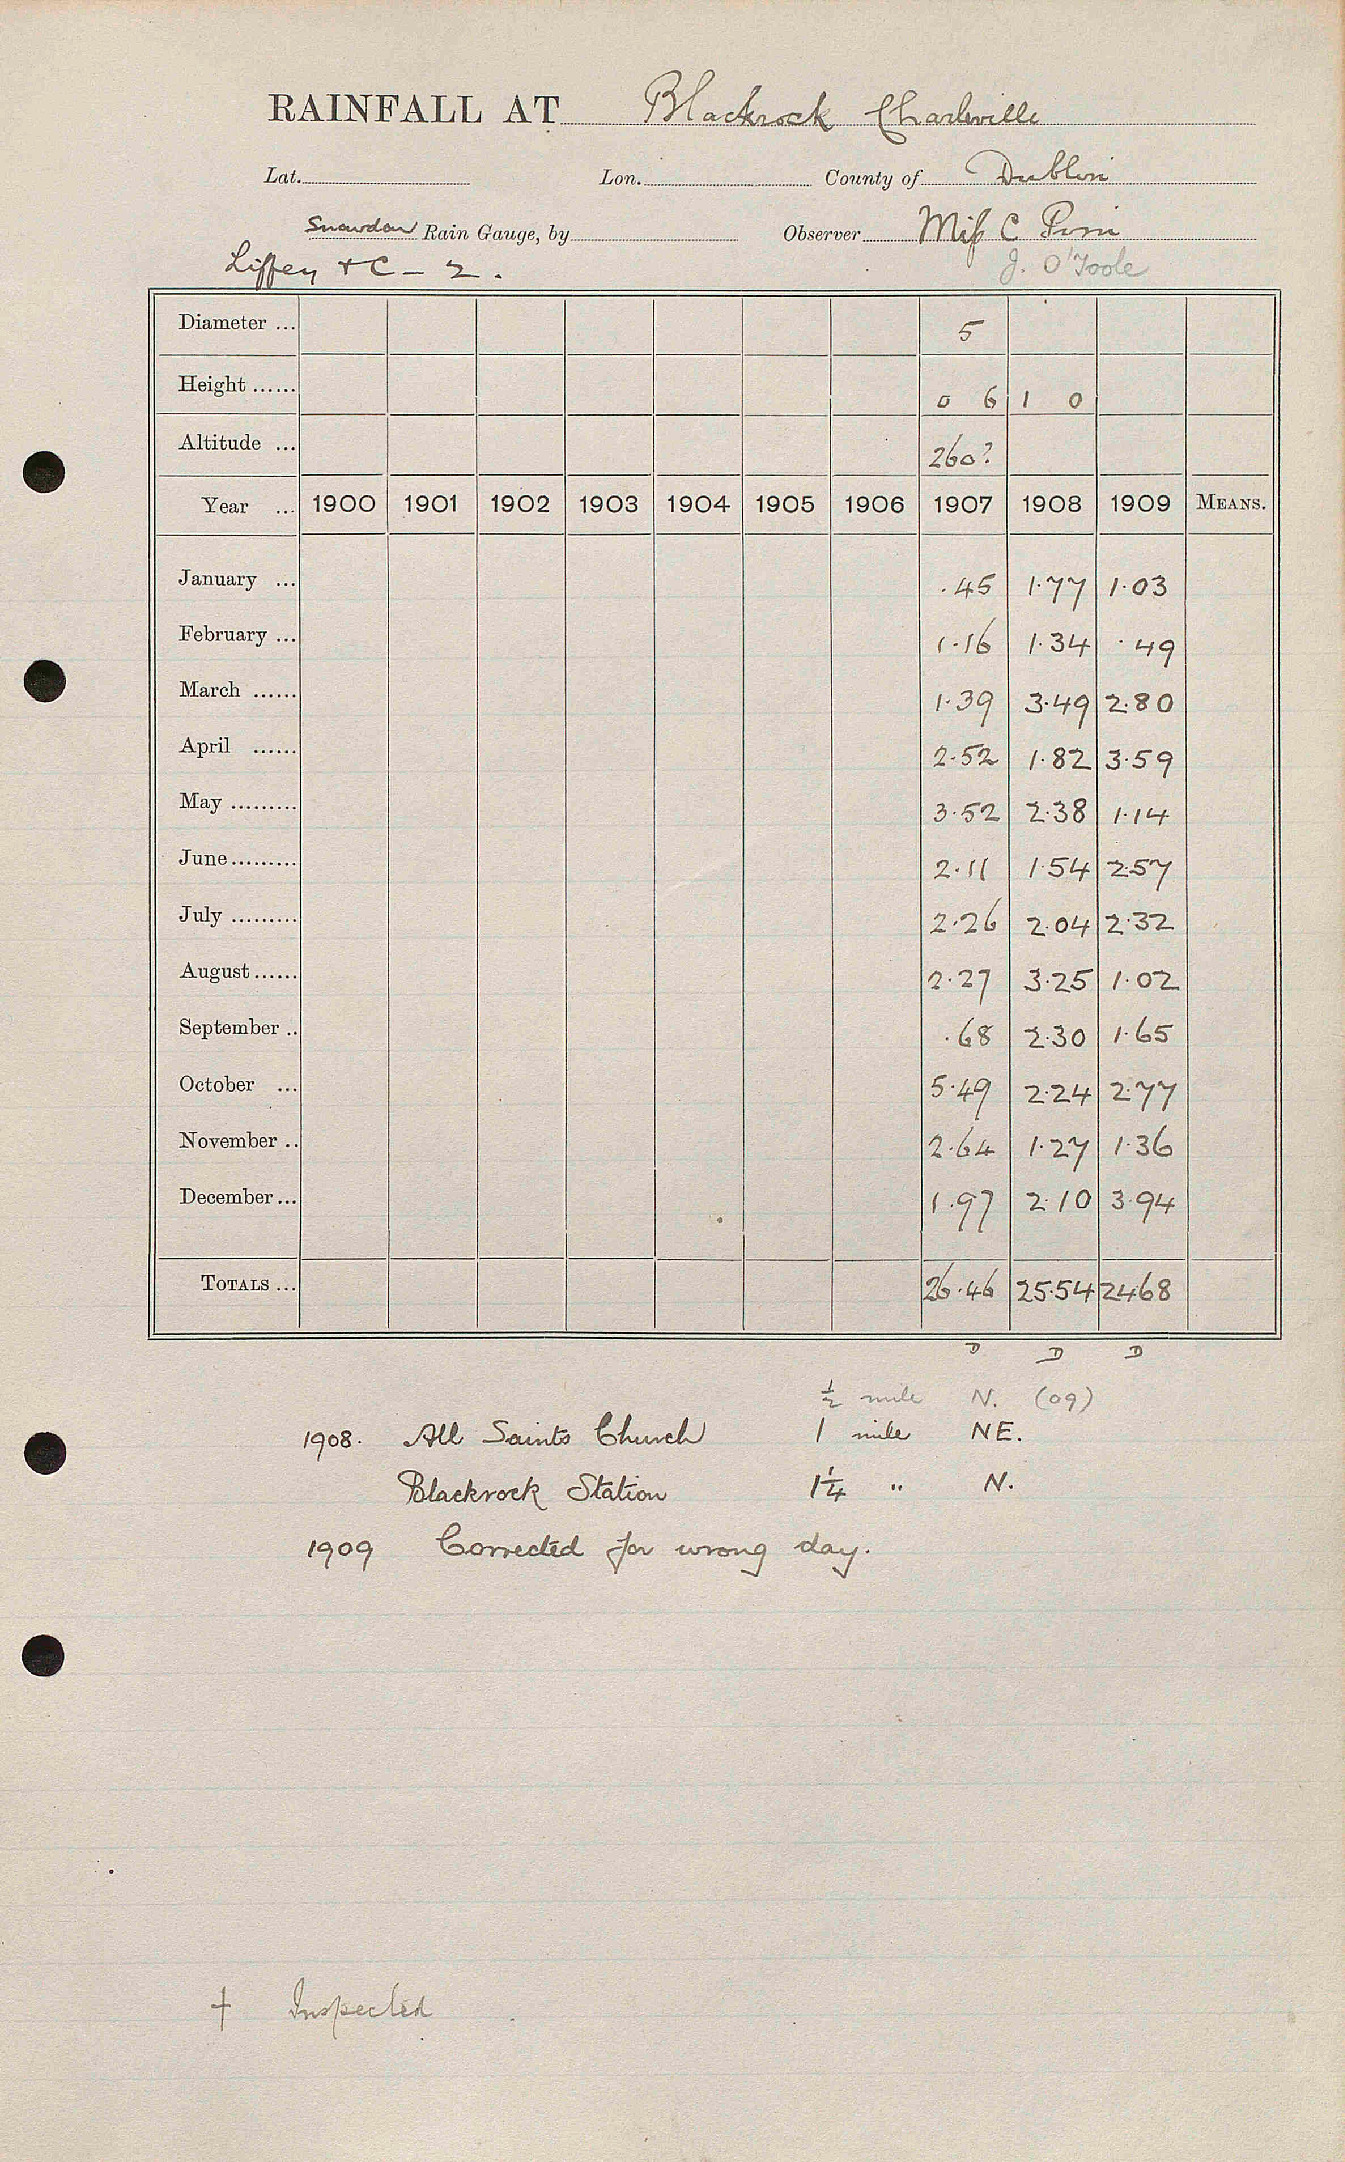 RAINFALL AT Blackrock Charleville
Lat. Lon. County of Dublin
Snowdon Rain Gauge, by Observer Miss C Pim
Liffey + C – 2. J. O'Toole
Diameter ... 5
Height ...... 0 6 1 0
Altitude ... 260?
Year ... 1900 1901 1902 1903 1904 1905 1906 1907 1908 1909 MEANS.
January ... .45 1.77 1.03
February ... 1.16 1.34 .49
March ...... 1.39 3.49 2.80
April ...... 2.52 1.82 3.59
May ......... 3.52 2.38 1.14
June ......... 2.11 1.54 2.57
July ......... 2.26 2.04 2.32
August ...... 2.27 3.25 1.02
September .. .68 2.30 1.65
October ... 5.49 2.24 2.77
November .. 2.64 1.27 1.36
December ... 1.97 2.10 3.94
TOTALS ... 26.46 25.54 24.68
D D D
½ mile N. (09)
1908. All Saints Church 1 mile NE.
Blackrock Station 1¼ " N.
1909 Corrected for wrong day.
† Inspected